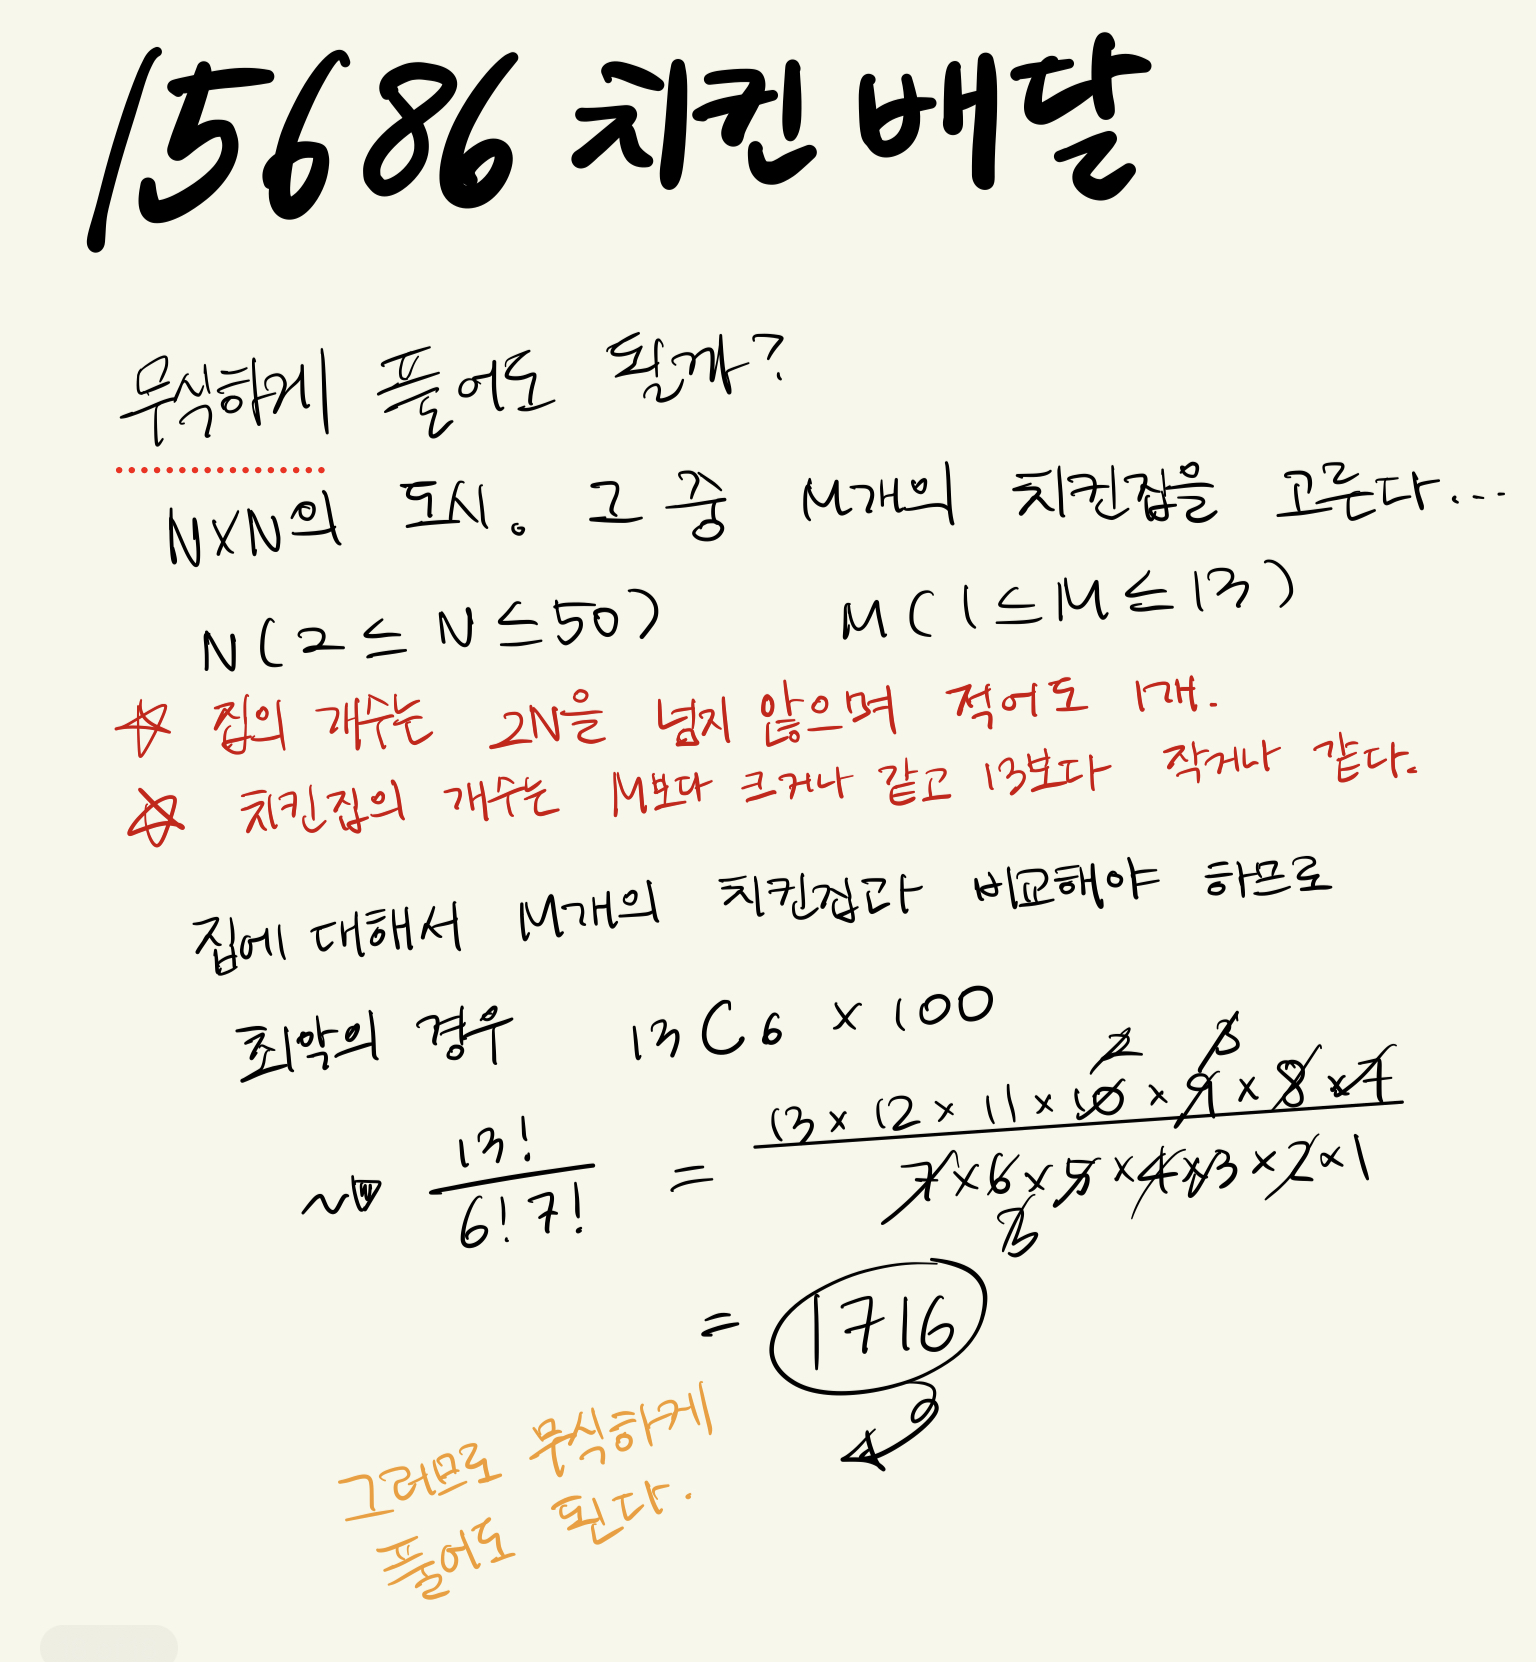 15686 치킨 배달
무식하게 풀어도 될까?
N×N의 도시. 그 중 M개의 치킨집을 고른다...
N(2≤N≤50) M(1≤M≤13)
☆ 집의 개수는 2N을 넘지 않으며 적어도 1개.
☆ 치킨집의 개수는 M보다 크거나 같고 13보다 작거나 같다.
집에 대해서 M개의 치킨집과 비교해야 하므로
최악의 경우 13C6 × 100
2 3
13! = 13 × 12 × 11 × 10 × 9 × 8 × 7
6! 7! 7 × 6 × 5 × 4 × 3 × 2 × 1
3
= 1716
그러므로 무식하게
풀어도 된다.